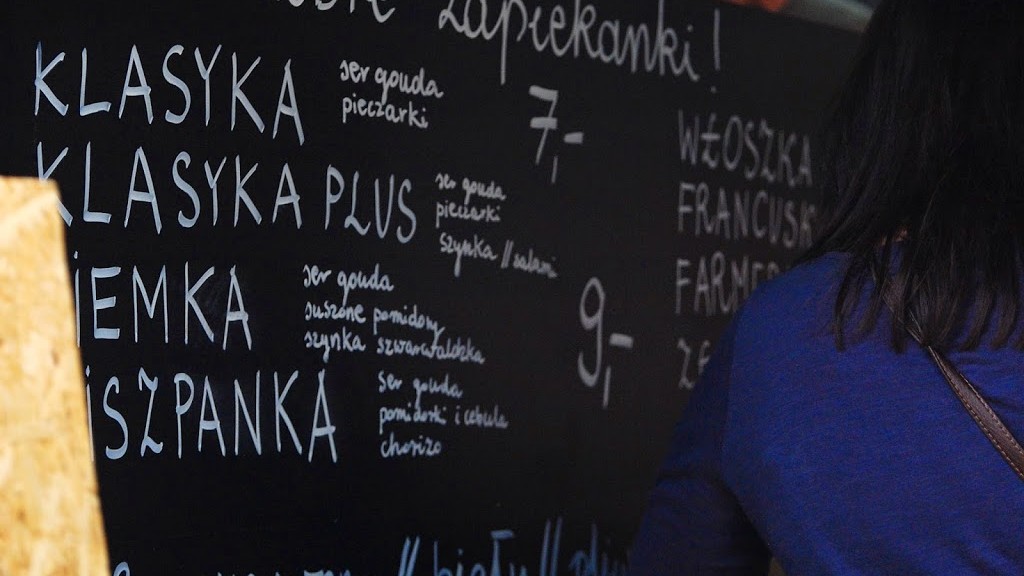 zapiekanki!
KLASYKA ser gouda
pieczarki
7,-
KLASYKA PLUS ser gouda
pieczarki
szynka // salami
ser gouda
suszone pomidory
szynka szwarcwaldzka
9,-
HISZPANKA ser gouda
pomidorki i cebula
chorizo
WŁOSZKA
// biały //